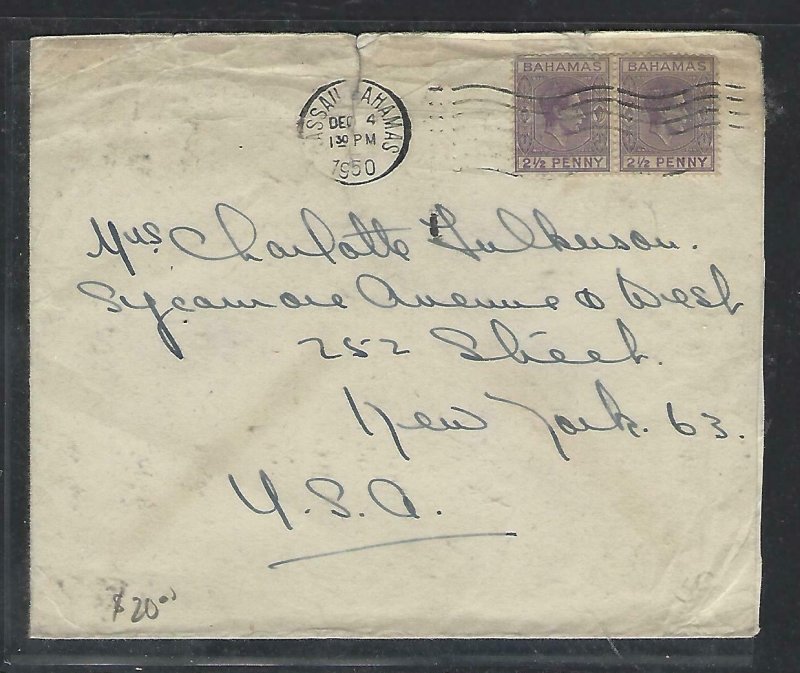 BAHAMAS BAHAMAS
2½ PENNY 2½ PENNY
NASSAU BAHAMAS
DEC 4
1 30 PM
1950
Mrs Charlotte Fulkerson.
Sycamore Avenue & West
252 Street.
New York. 63.
U.S.A.
$20.00